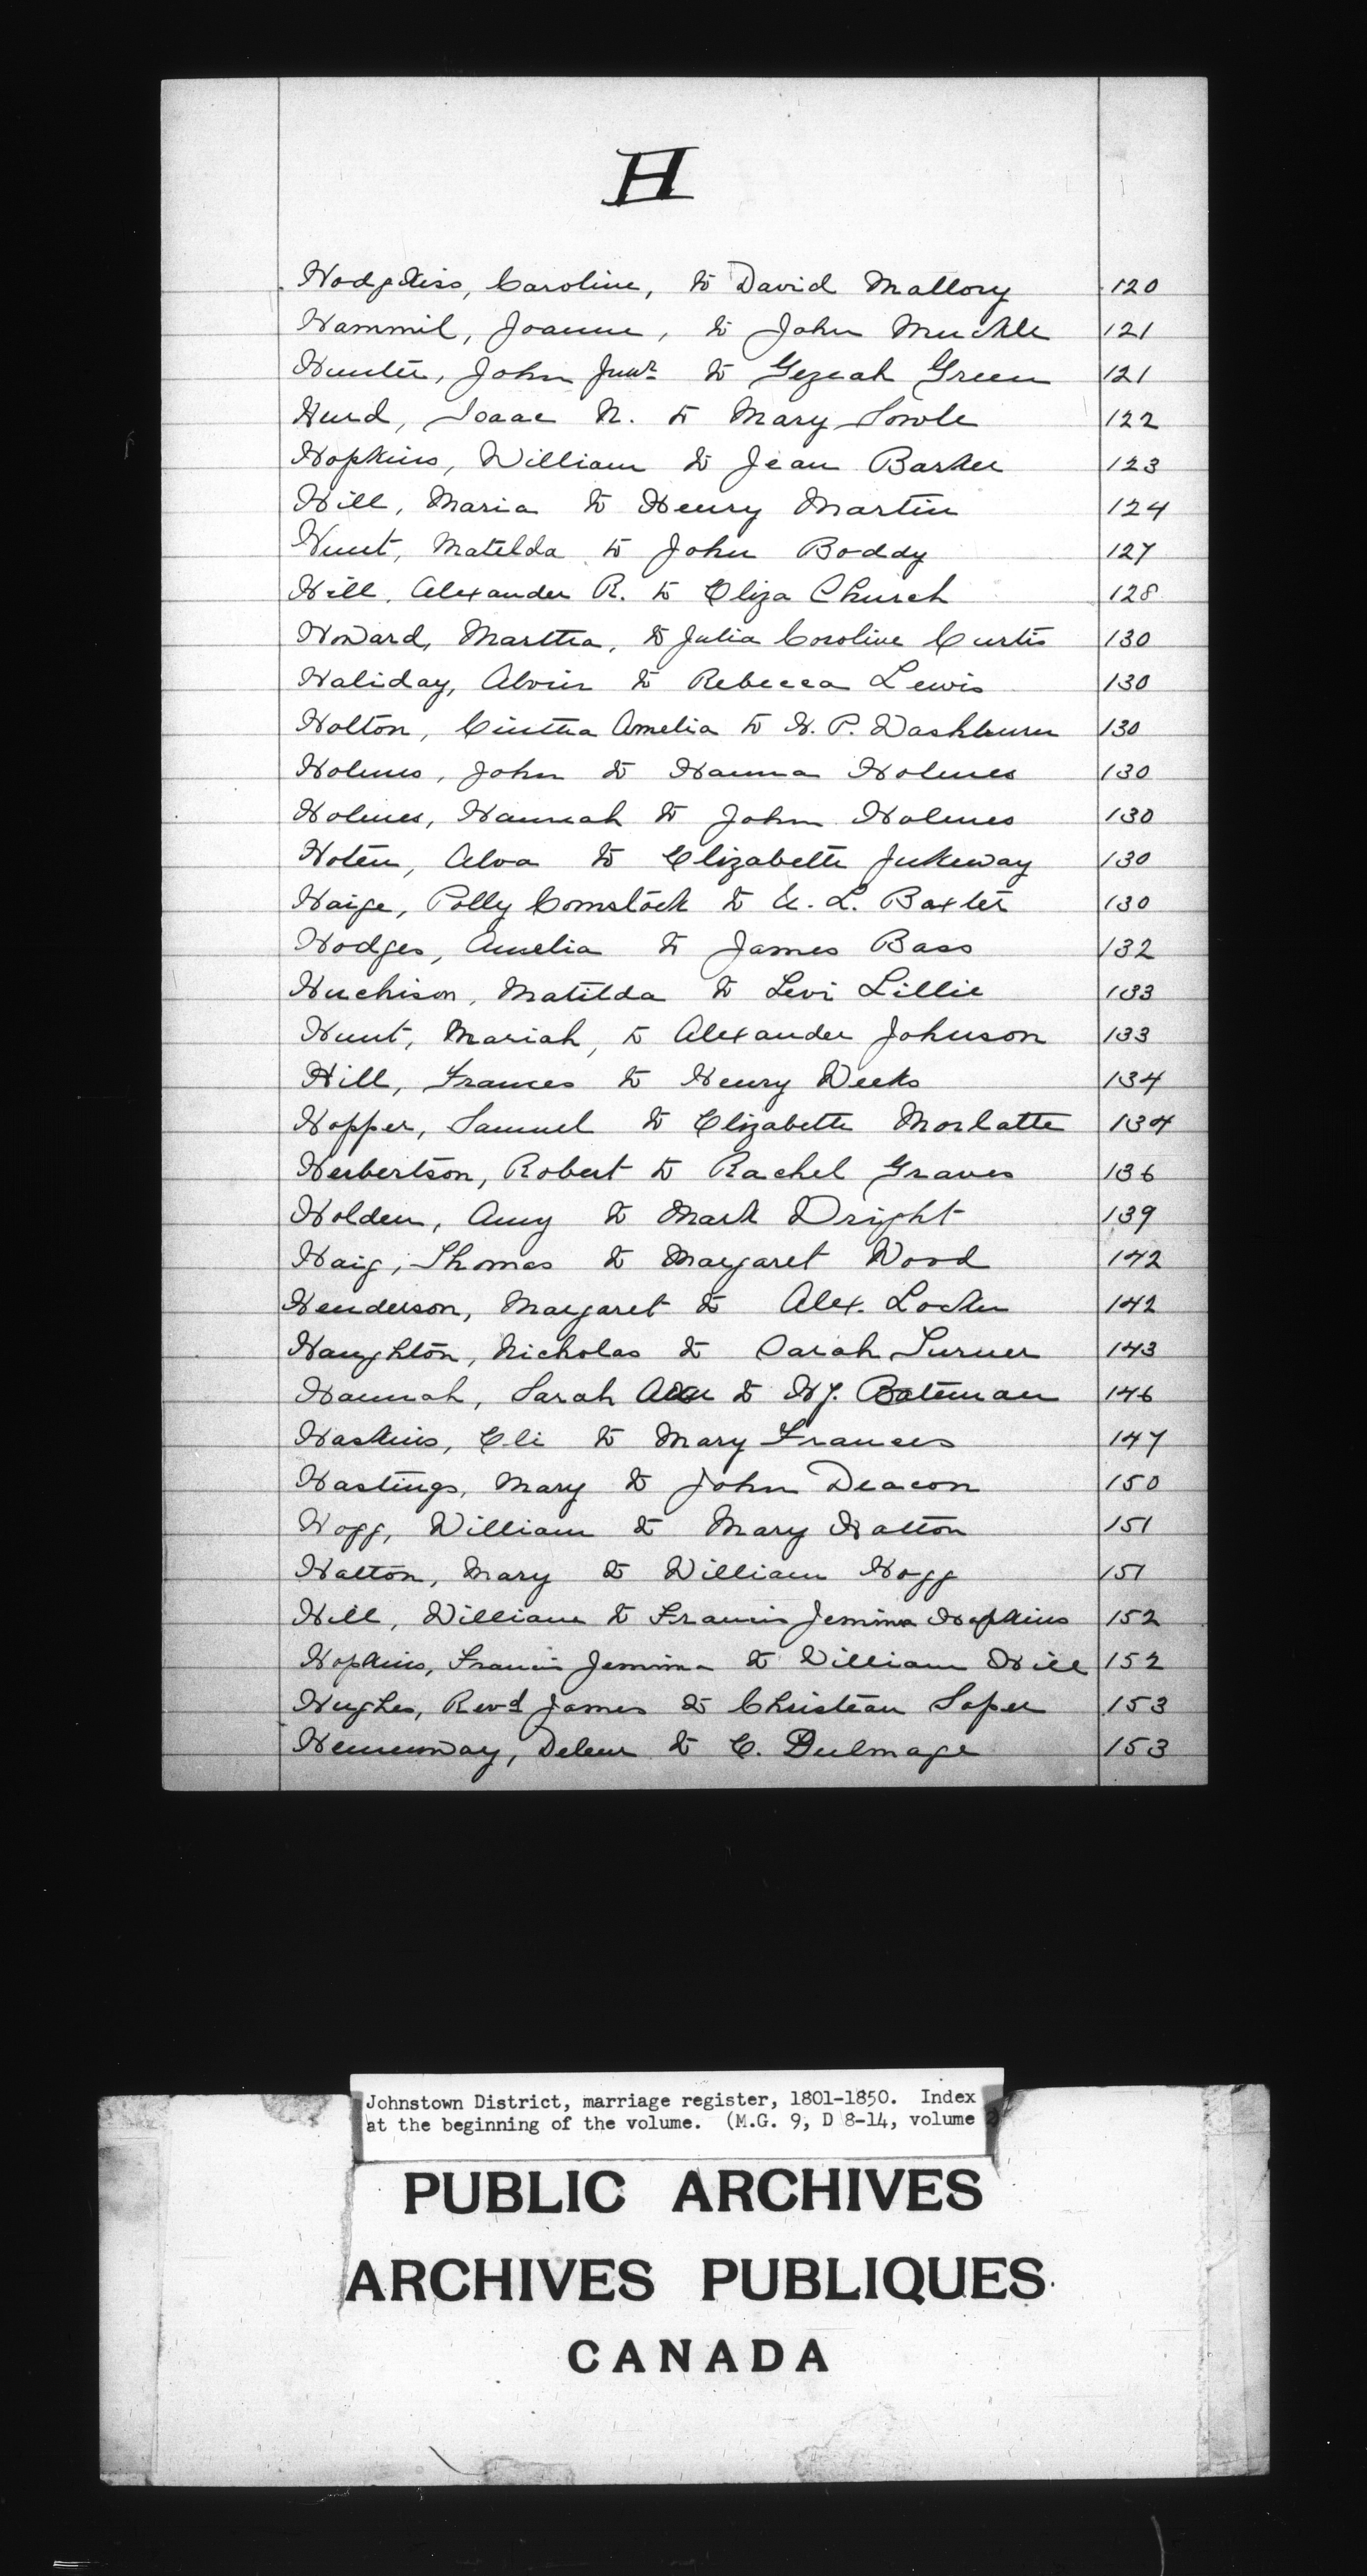 H
Hodgkiss, Caroline, to David Mallory 120
Hammil, Joanne, to John Muckle 121
Hunter, John Junr. to Gezeah Green 121
Hurd, Isaac N. to Mary Sowle 122
Hopkins, William to Jean Barker 123
Hill, Maria to Henry Martin 124
Hunt, Matelda to John Boddy 127
Hill, Alexander R. to Eliza Church 128
Howard, Martha, to Julia Coroline Curtis 130
Haliday, Alvin to Rebecca Lewis 130
Holton, Cintha Amelia to H. P. Washburn 130
Holmes, John to Hanna Holmes 130
Holmes, Hannah to John Holmes 130
Hoten, Alva to Elizabeth Jukeway 130
Haige, Polly Comstock to L. Baxter 130
Hodges, Amelia to James Bass 132
Huchison, Matilda to Levi Lillie 133
Hunt, Mariah, to Alexander Johnson 133
Hill, Frances to Henry Weeks 134
Hopper, Samuel to Elizabeth Morlatte 134
Herbertson, Robert to Rachel Graves 136
Holden, Amy to Mark Wright 139
Haig, Thomas to Margaret Wood 142
Henderson, Margaret to Alex. Locker 142
Haughton, Nicholas to Sarah Turner 143
Hannah, Sarah Ann to HJ. Bateman 146
Haskins, Eli to Mary Frances 147
Hastings, Mary to John Deacon 150
Hogg, William to Mary Halton 151
Halton, Mary to William Hogg 151
Hill, William to Francis Jemima Hopkins 152
Hopkins, Francis Jemima to William Hill 152
Hughes, Revd James to Christean Soper 153
Hemenway, to C. Dulmage 153
Johnstown District, marriage register, 1801-1850. Index
at the beginning of the volume. (M.G. 9, D 8-14, volume
PUBLIC ARCHIVES
ARCHIVES PUBLIQUES
CANADA